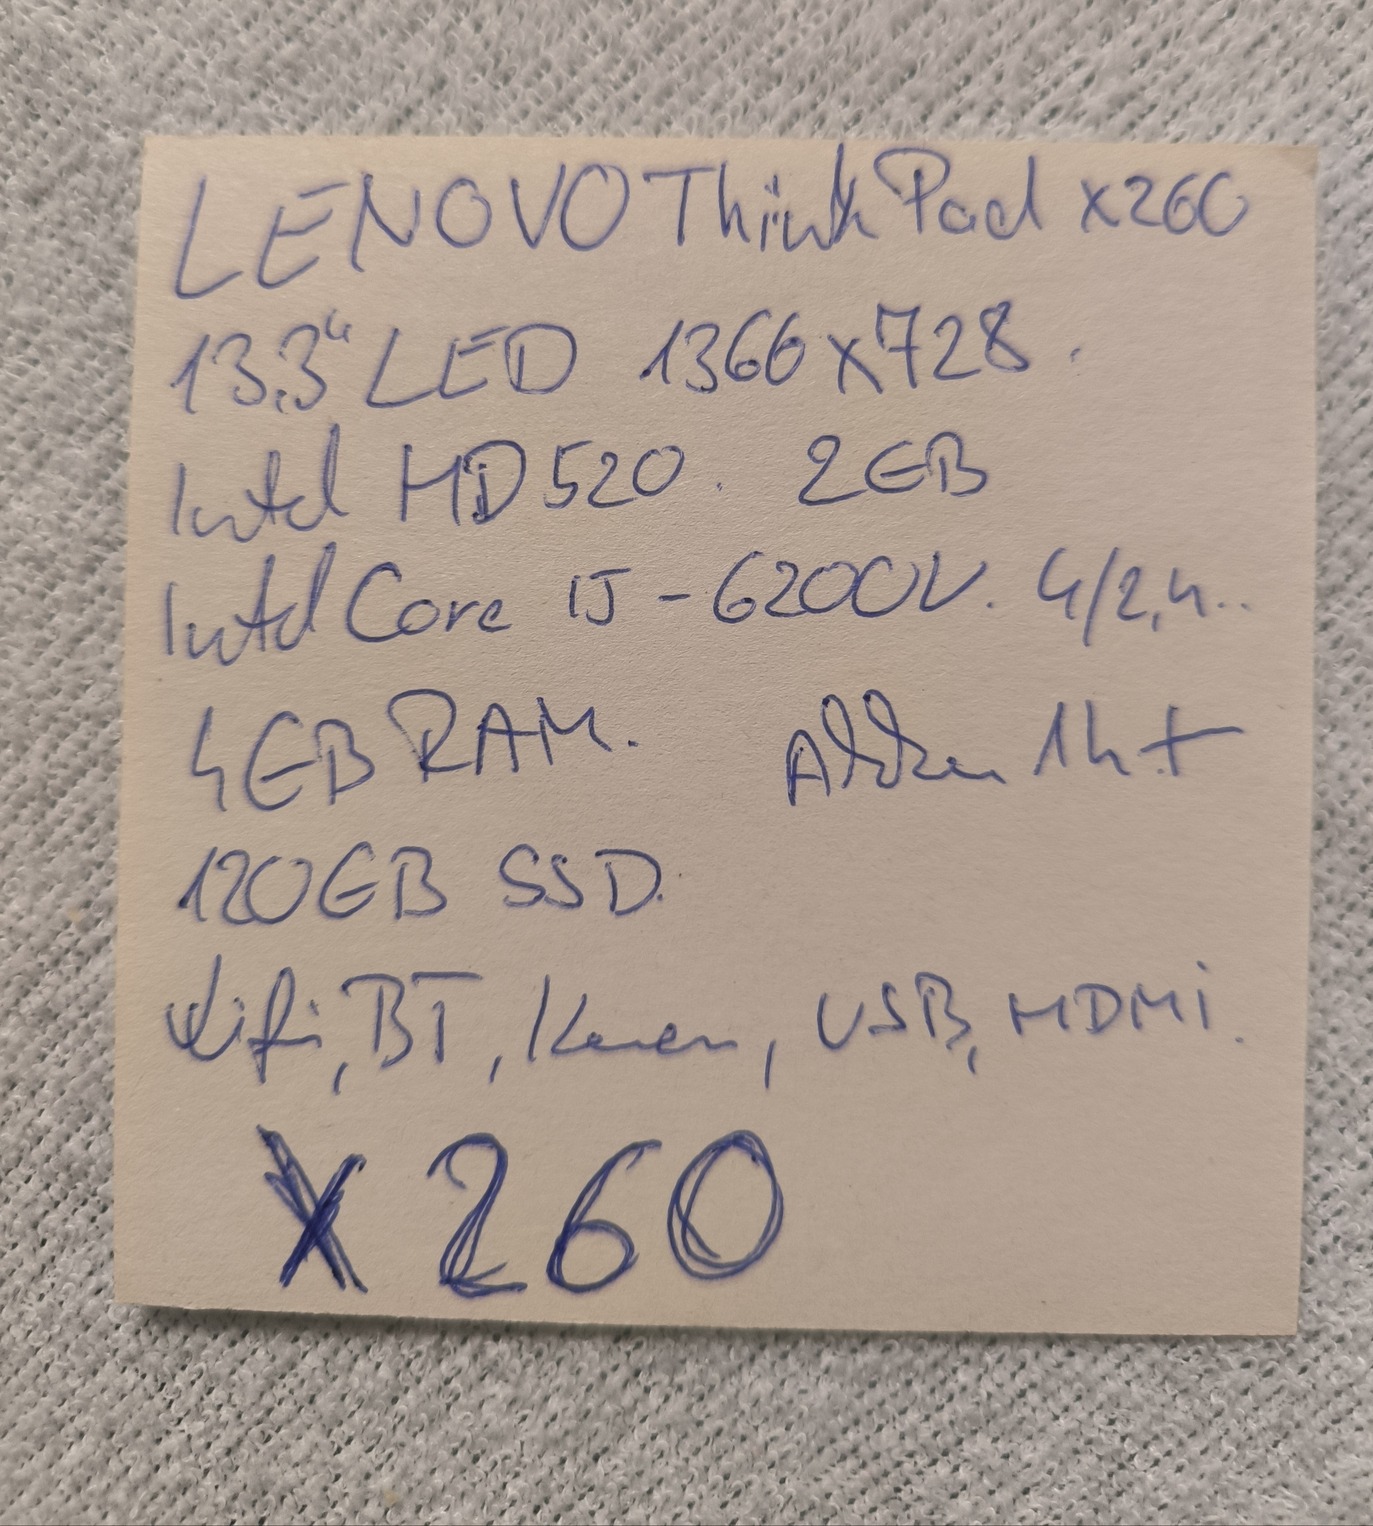 LENOVO ThinkPad x260
13.3" LED 1366x728.
Intel HD520. 2GB
Intel Core i5-6200U. 4/2,4..
4GB RAM. Akku 1h+
120GB SSD.
Wifi, BT, Kamera, USB, HDMi.
X260